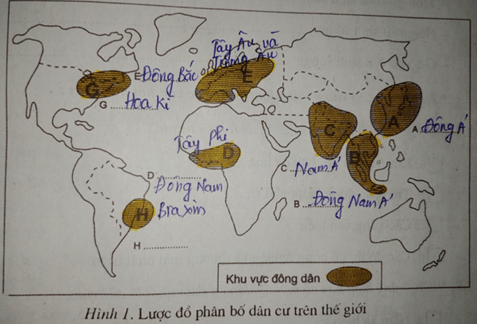 Tây Âu và
Trung Âu
E
E Đông Bắc
G
G ............
Hoa Kì
A
A Đông Á
Tây Phi
D
C
C ...
Nam Á
B
B ............
Đông Nam Á
D ............
Đông Nam
Braxin
H
H ............
Khu vực đông dân
Hình 1. Lược đồ phân bố dân cư trên thế giới